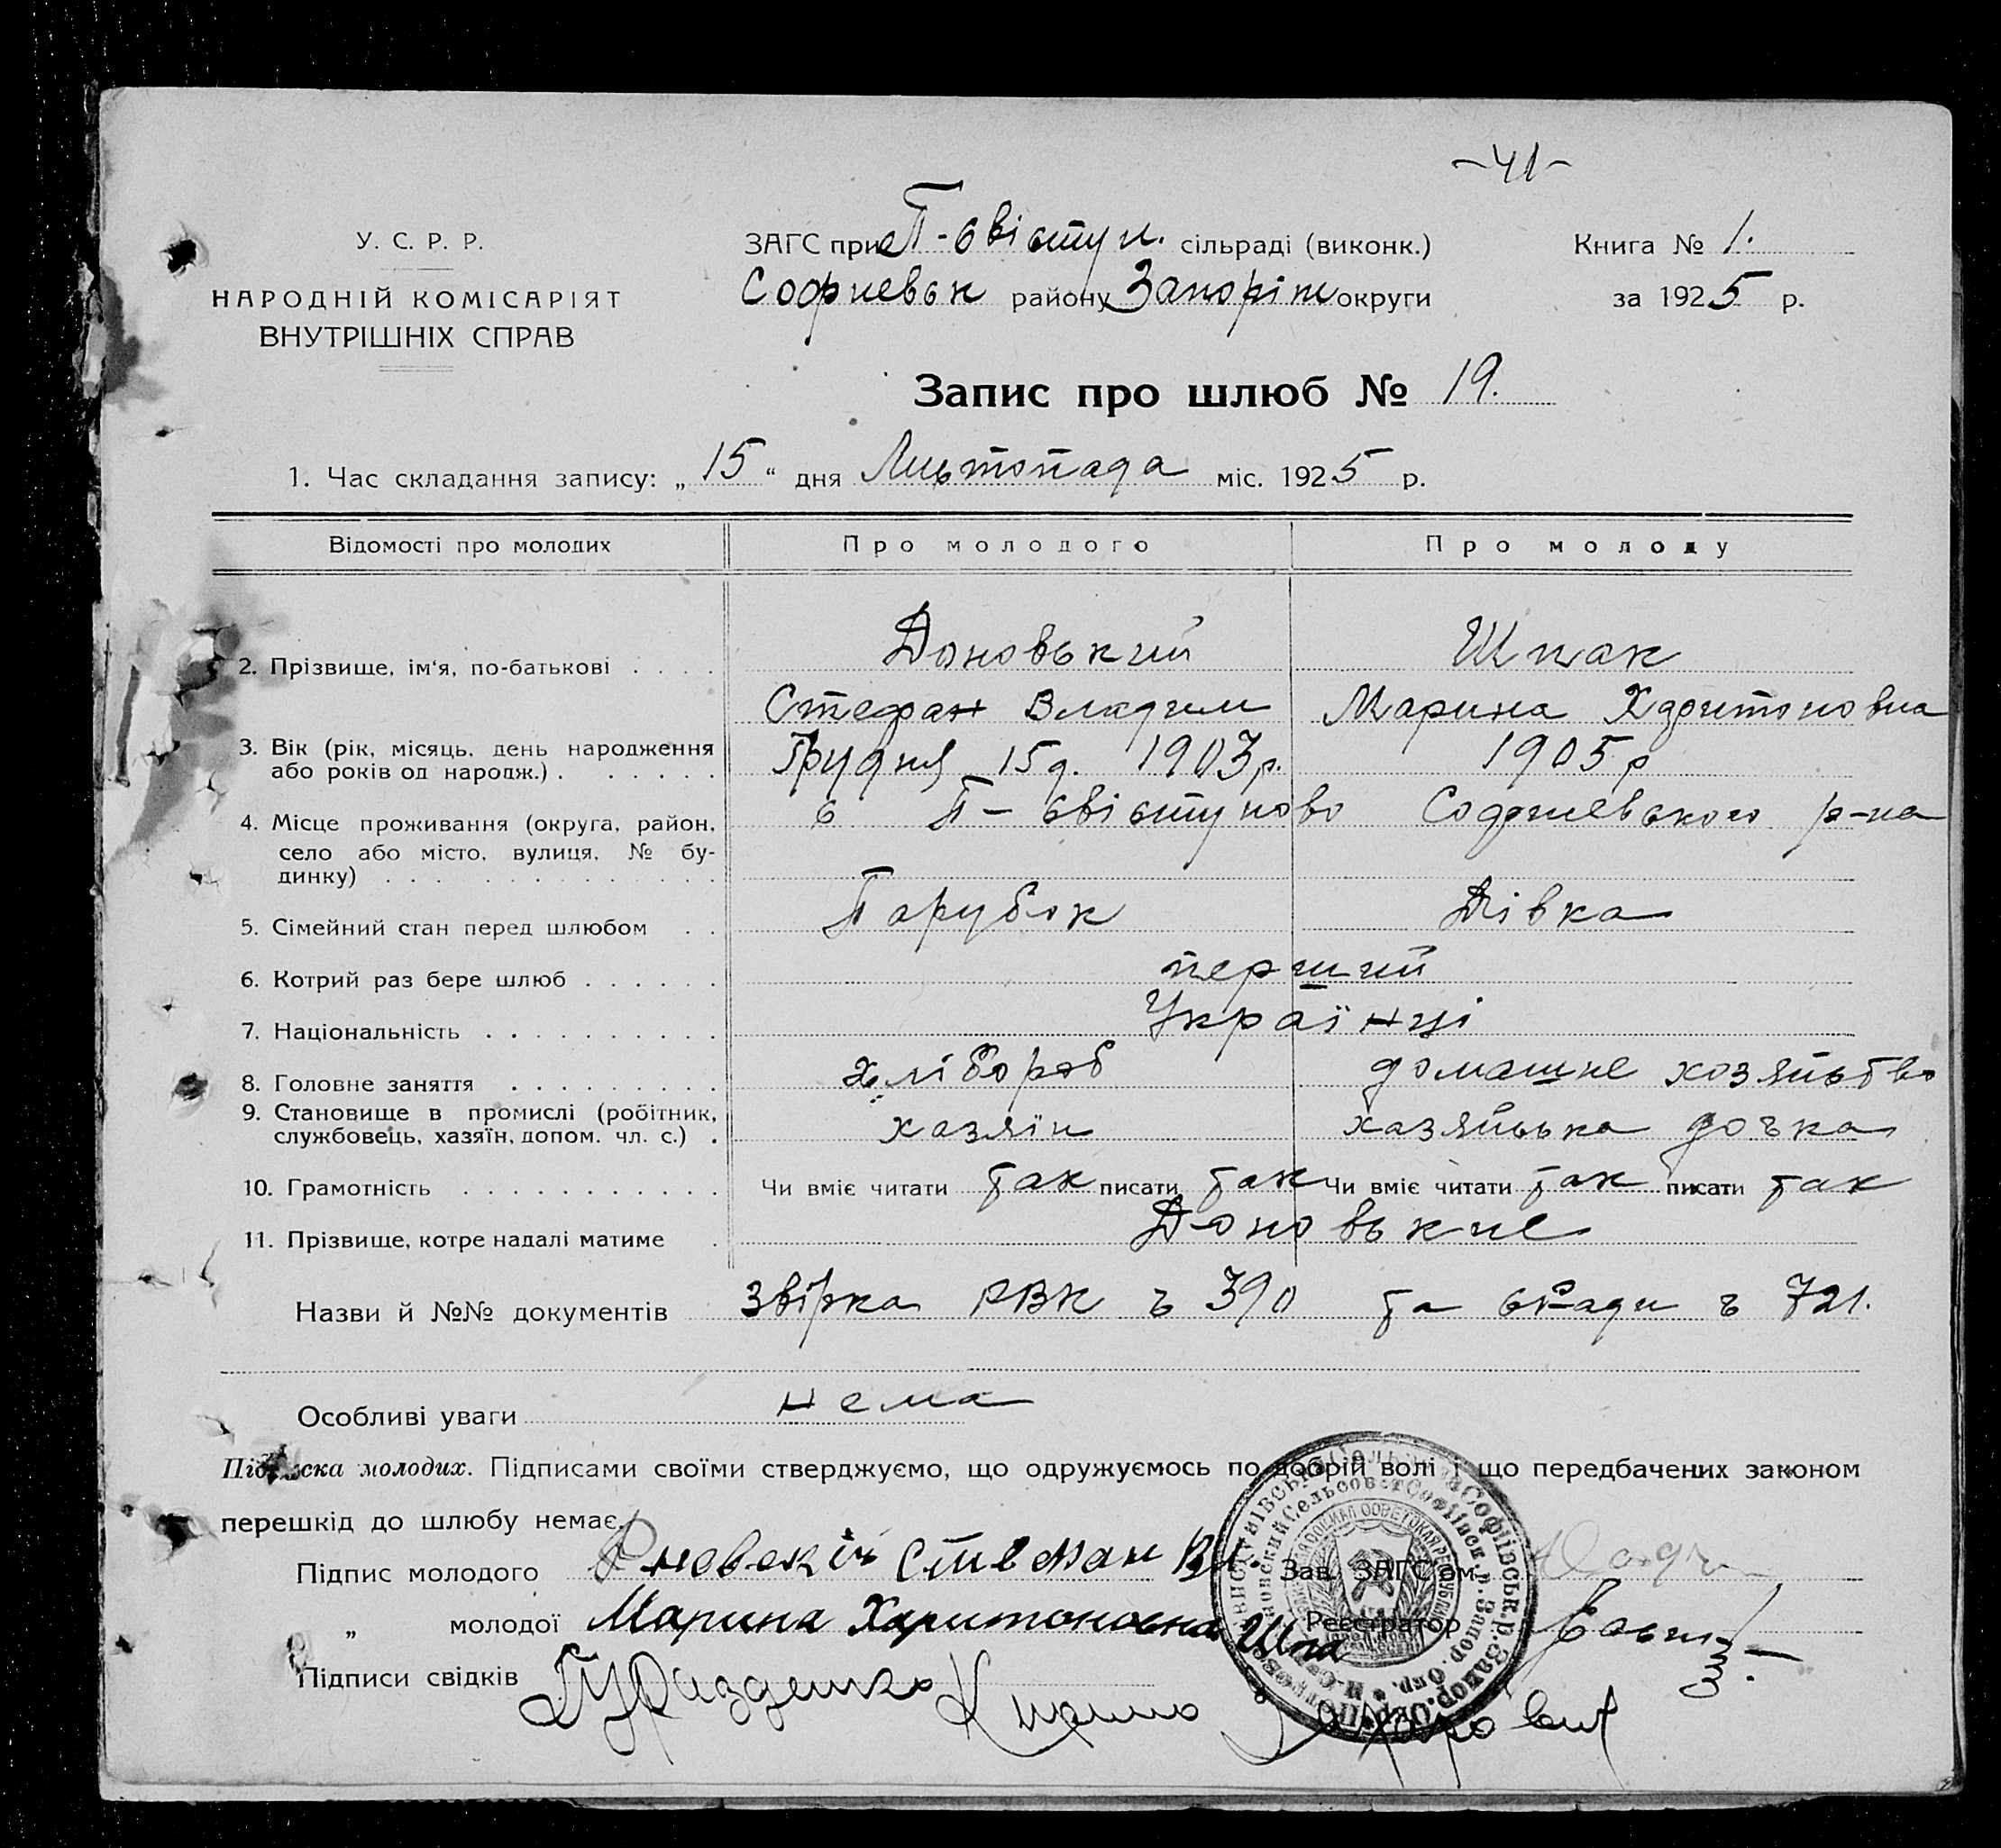 -41-
У. С. Р. Р.
НАРОДНІЙ КОМІСАРІЯТ
ВНУТРІШНІХ СПРАВ
ЗАГС при П-Свістун. сільраді (виконк.)
Софиевськ району Запоріж округи
Книга № 1.
за 1925 р.
Запис про шлюб № 19.
1. Час складання запису: „15“ дня Листопада міс. 1925 р.
Відомості про молодих Про молодого Про молоду
2. Прізвище, ім'я, по-батькові Доновський Шпак
Стефан Владим Марина Харитоновна
3. Вік (рік, місяць, день народження Грудня 15д. 1903р. 1905 р
або років од народж.)
4. Місце проживання (округа, район, с П-Свістуново Софиевського р-на
село або місто, вулиця, № бу-
динку)
5. Сімейний стан перед шлюбом Парубок Дівка
6. Котрий раз бере шлюб перший
7. Національність Українці
8. Головне заняття хлібороб домашне хозяйство
9. Становище в промислі (робітник,
службовець, хазяїн, допом. чл. с.) хазяїн хазяйська дочка
10. Грамотність Чи вміє читати так писати так Чи вміє читати так писати так
11. Прізвище, котре надалі матиме Доновське
Назви й №№ документів Звірка РВК ч 390 та с/ради ч 721.
Особливі уваги нема
Підписка молодих. Підписами своїми стверджуємо, що одружуємось по добрій волі і що передбачених законом
перешкід до шлюбу немає.
Підпис молодого Стефан Вл. Зав. ЗАГС'ом
„ молодої Марина Харитоновна Шпа Реєстратор
Підписи свідків